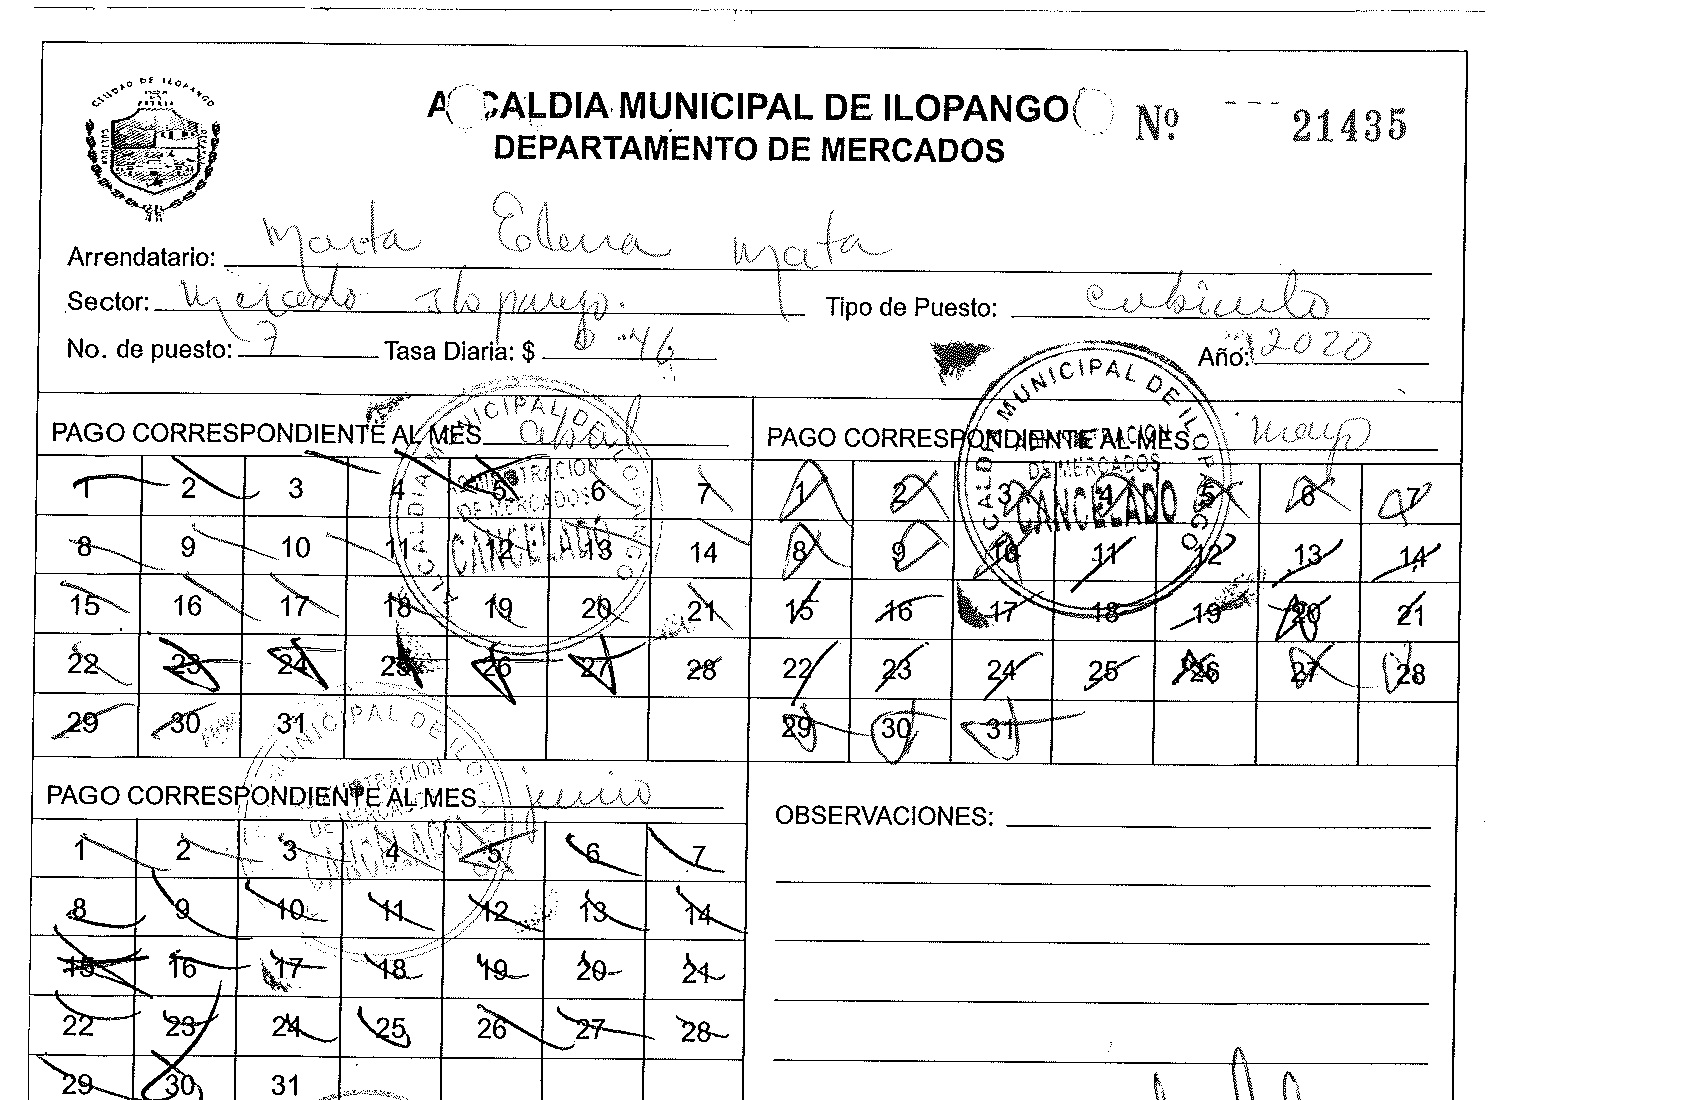 CIUDAD DE ILOPANGO
ALCALDIA MUNICIPAL DE ILOPANGO Nº 21435
DEPARTAMENTO DE MERCADOS
Arrendatario: Marta Elena Mata
Sector: Mercado Ilopango. Tipo de Puesto: cubiculo
No. de puesto: 7 Tasa Diaria: $ 0.46 Año: 2020
PAGO CORRESPONDIENTE AL MES abril
1 2 3 4 5 6 7
8 9 10 11 12 13 14
15 16 17 18 19 20 21
22 23 24 25 26 27 28
29 30 31
ALCALDIA MUNICIPAL DE ILOPANGO
ADMINISTRACION
DE MERCADOS
CANCELADO
PAGO CORRESPONDIENTE AL MES mayo
1 2 3 4 5 6 7
8 9 10 11 12 13 14
15 16 17 18 19 20 21
22 23 24 25 26 27 28
29 30 31
ALCALDIA MUNICIPAL DE ILOPANGO
ADMINISTRACION
DE MERCADOS
CANCELADO
PAGO CORRESPONDIENTE AL MES junio
1 2 3 4 5 6 7
8 9 10 11 12 13 14
15 16 17 18 19 20 21
22 23 24 25 26 27 28
29 30 31
MUNICIPAL DE ILOPANGO
ADMINISTRACION
DE MERCADOS
CANCELADO
OBSERVACIONES: